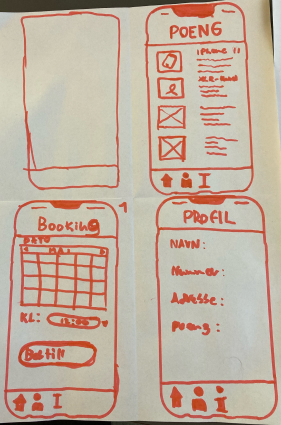 POENG
iPhone 11
Booking
DATO
MAI
KL: 12:00
Bestill
PROFIL
NAVN:
Nummer:
Adresse:
Poeng: